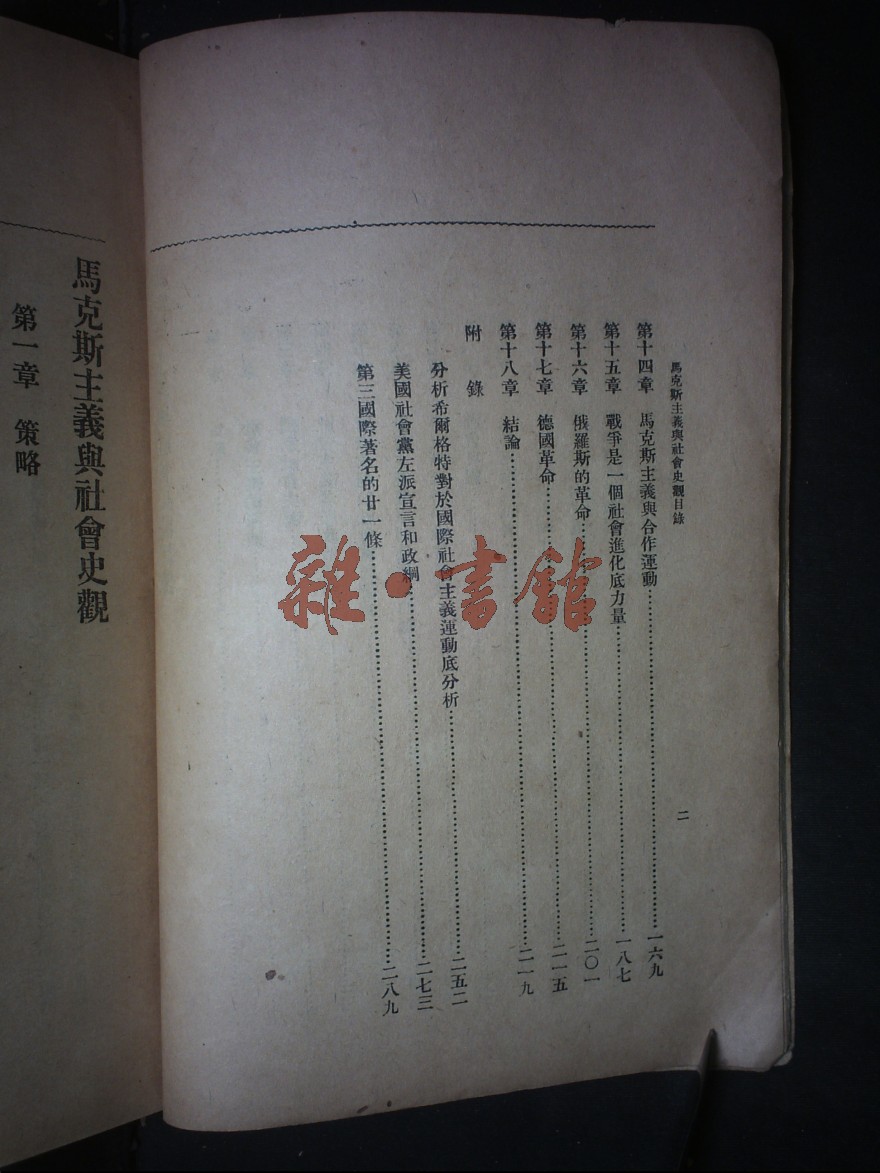 馬克斯主義與社會史觀目錄
二
第十四章 馬克斯主義與合作運動⋯⋯一六九
第十五章 戰爭是一個社會進化底力量⋯⋯一八七
第十六章 俄羅斯的革命⋯⋯二〇一
第十七章 德國革命⋯⋯二一五
第十八章 結論⋯⋯二一九
附錄
分析希爾格特對於國際社會主義運動底分析⋯⋯二五二
美國社會黨左派宣言和政綱⋯⋯二七三
第三國際著名的廿一條⋯⋯二八九
馬克斯主義與社會史觀
第一章 策略
雜·書館